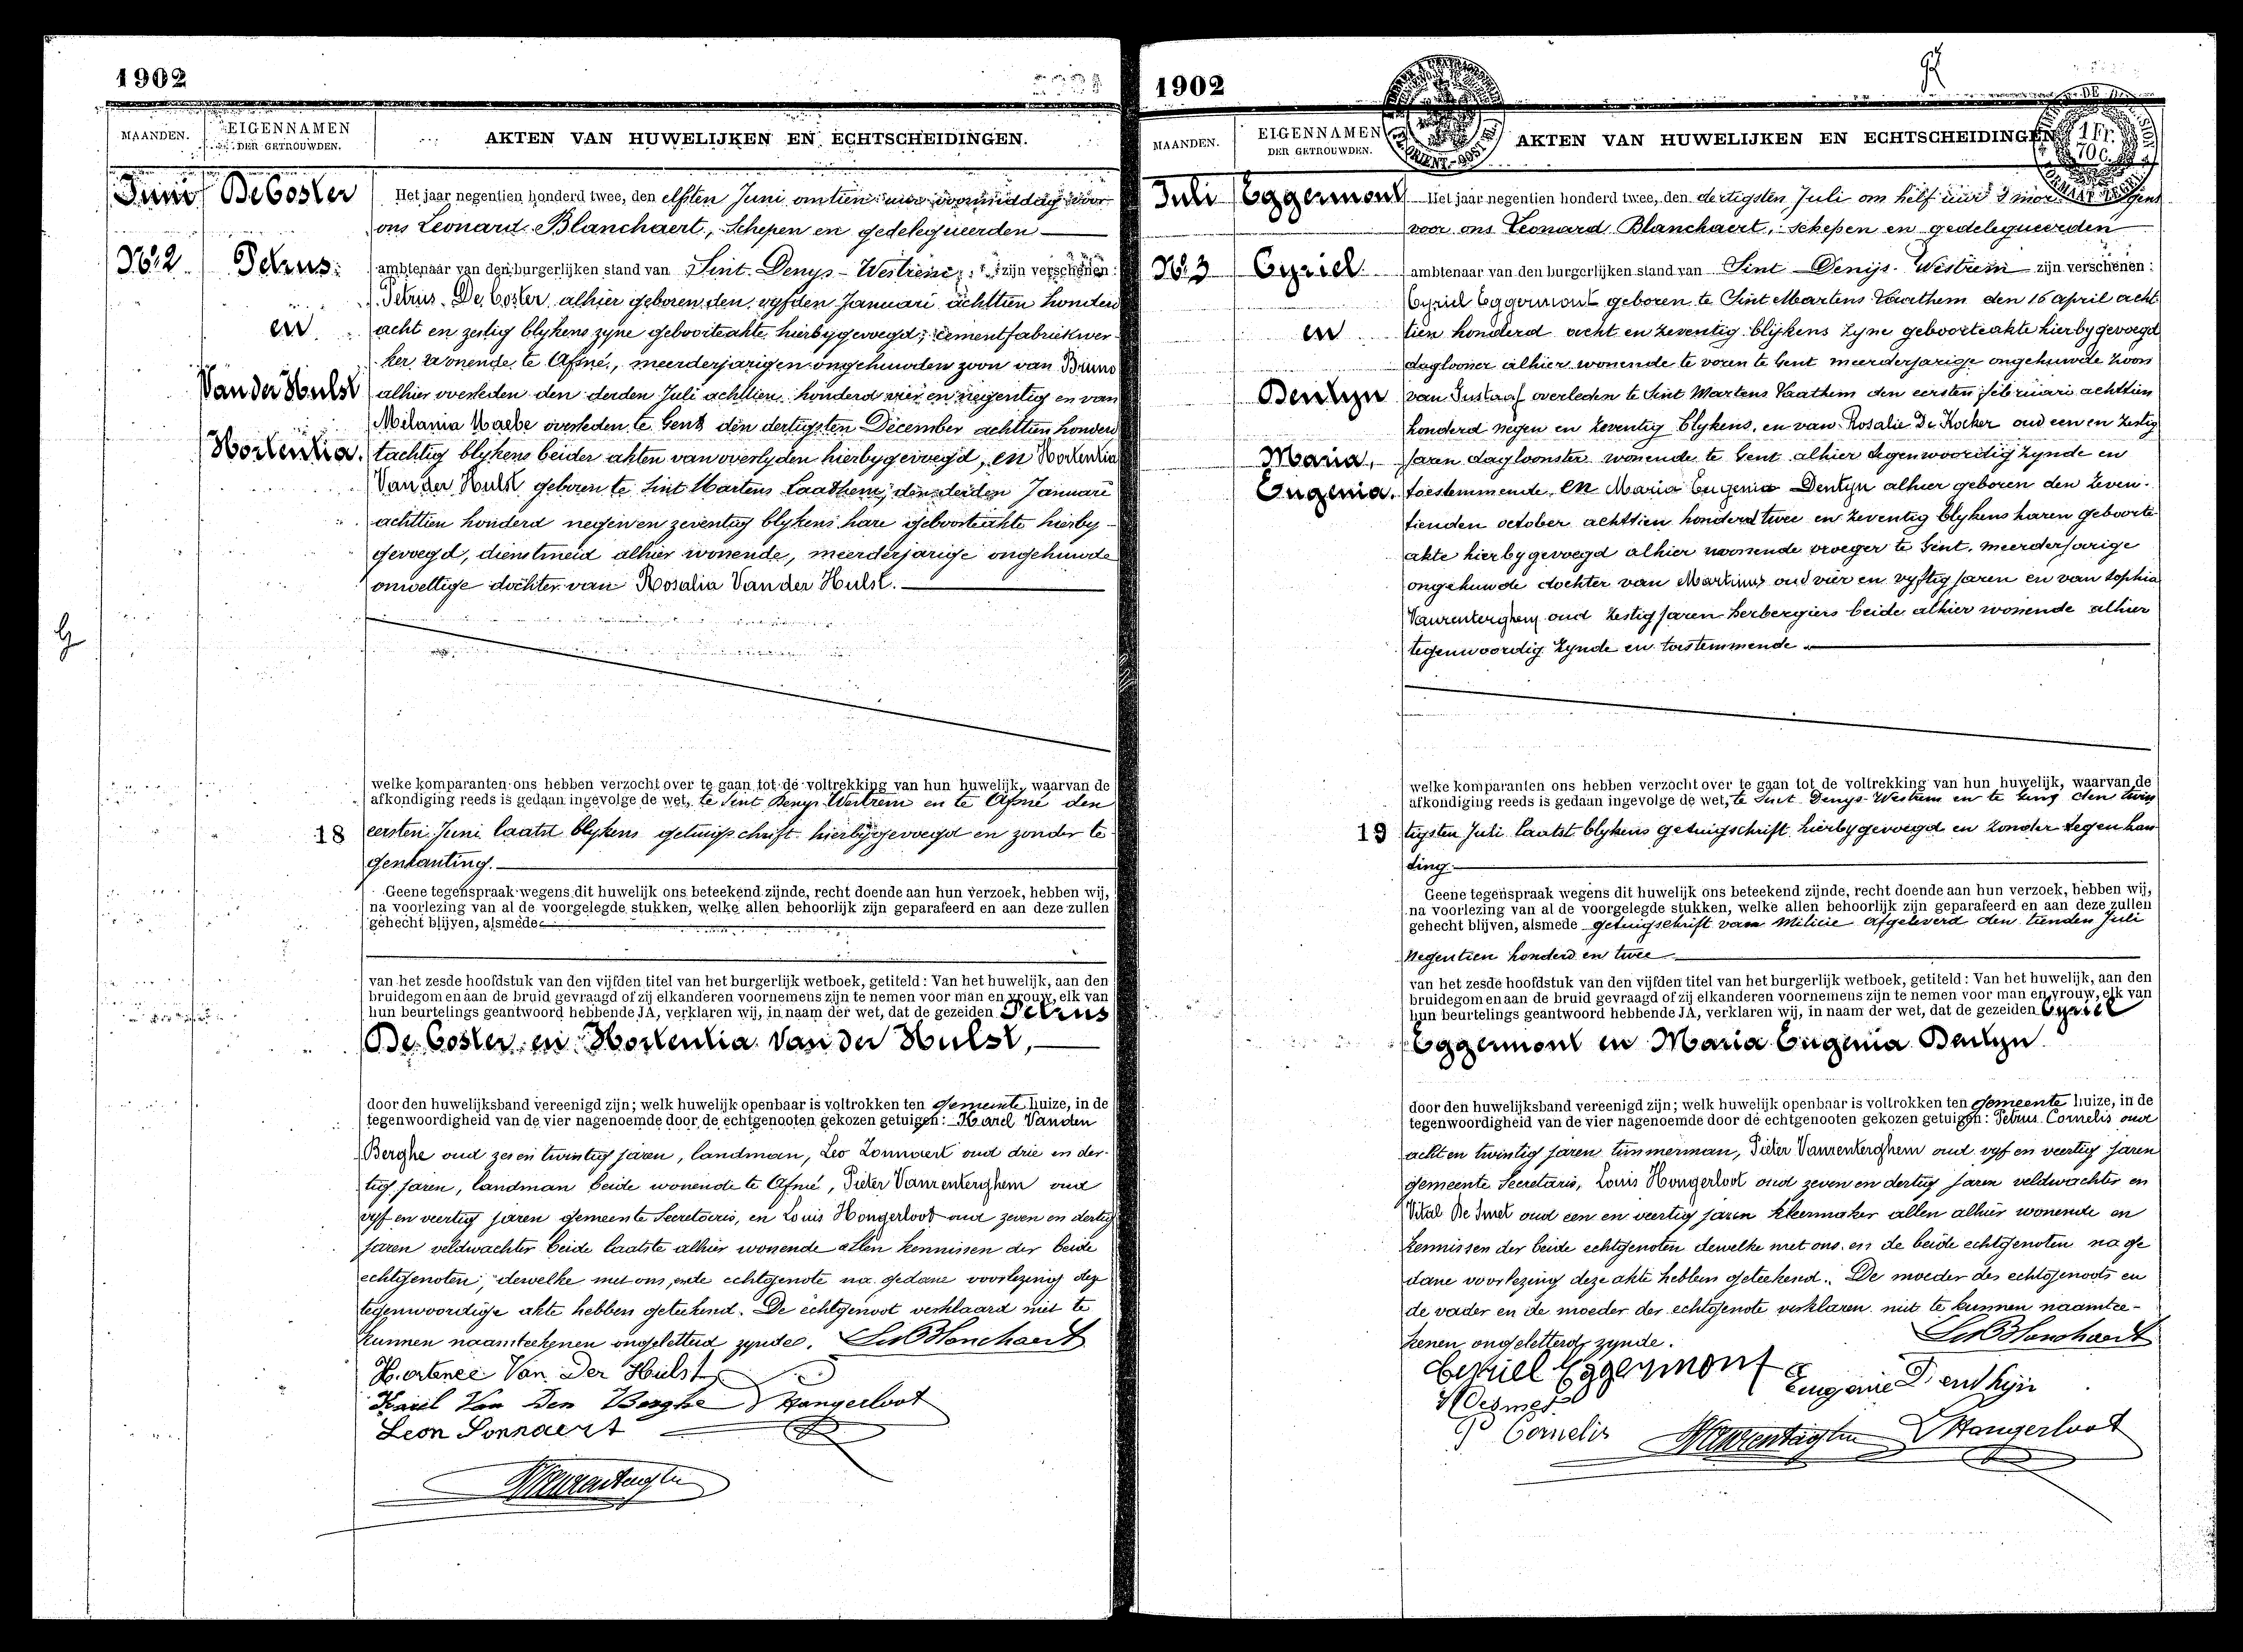 1902
MAANDEN.
EIGENNAMEN
DER GETROUWDEN.
AKTEN VAN HUWELIJKEN EN ECHTSCHEIDINGEN.
Juni
De Coster
No. 2
Petrus
en
Van der Hulst
Hortentia.
Het jaar negentien honderd twee, den elfsten Juni om tien uur voormiddag voor
ons Leonard Blanchaert, Schepen en gedelegueerden
ambtenaar van den burgerlijken stand van Sint-Denys-Westrem zijn verschenen:
Petrus De Coster alhier geboren den vyfden Januari achttien honderd
acht en zestig blykens zyne geboorteakte hierbygevoegd, cementfabriekwer-
ker wonende te Afsné, meerderjarigen ongehuwden zoon van Bruno
alhier overleden den derden Juli achttien honderd vier en negentig en van
Melania Maebe overleden te Gent den dertigsten December achttien honderd
tachtig blykens beider akten van overlyden hierbygevoegd, en Hortentia
Van der Hulst geboren te Sint Martens Laathem, den derden Januari
achttien honderd negen en zeventig blykens hare geboorteakte hierby-
gevoegd, dienstmeid alhier wonende, meerderjarige ongehuwde
onwettige dochter van Rosalia Van der Hulst.
welke komparanten ons hebben verzocht over te gaan tot de voltrekking van hun huwelijk, waarvan de
afkondiging reeds is gedaan ingevolge de wet, te Sint Denys-Westrem en te Afsné den
18
eersten Juni laatst blykens getuigschrift hierbygevoegd en zonder te-
genkanting.
Geene tegenspraak wegens dit huwelijk ons beteekend zijnde, recht doende aan hun verzoek, hebben wij,
na voorlezing van al de voorgelegde stukken, welke allen behoorlijk zijn geparafeerd en aan deze zullen
gehecht blijven, alsmede
van het zesde hoofdstuk van den vijfden titel van het burgerlijk wetboek, getiteld: Van het huwelijk, aan den
bruidegom en aan de bruid gevraagd of zij elkanderen voornemens zijn te nemen voor man en vrouw, elk van
hun beurtelings geantwoord hebbende JA, verklaren wij, in naam der wet, dat de gezeiden Petrus
De Coster en Hortentia Van der Hulst,
door den huwelijksband vereenigd zijn; welk huwelijk openbaar is voltrokken ten gemeente huize, in de
tegenwoordigheid van de vier nagenoemde door de echtgenooten gekozen getuigen: Karel Vanden
Berghe oud zes en twintig jaren, landman, Leo Lonnaert oud drie en der-
tig jaren, landman beide wonende te Afsné, Pieter Vanrenterghem oud
vyf en veertig jaren gemeente Secretaris, en Louis Hongerloot oud zeven en dertig
jaren veldwachter beide laatste alhier wonende allen kennissen der beide
echtgenoten, dewelke met ons, ende echtgenote na gedane voorlezing dez
tegenwoordige akte hebben geteekend. De echtgenoot verklaard niet te
kunnen naamteekenen ongeletterd zynde. Leo Blanchaert
Hortence Van Der Hulst
Karel Van Den Berghe Hangerloot
Leon Lonnaert
1902
MAANDEN.
EIGENNAMEN
DER GETROUWDEN.
AKTEN VAN HUWELIJKEN EN ECHTSCHEIDINGEN
1 Fr.
Juli
Eggermont
No. 3
Cyriel
en
Dentyn
Maria,
Eugenia.
Het jaar negentien honderd twee, den dertigsten Juli om half uur 's morgens
voor ons Leonard Blanchaert, schepen en gedelegueerden
ambtenaar van den burgerlijken stand van Sint-Denijs-Westrem zijn verschenen:
Cyriel Eggermont geboren te Sint Martens Laathem den 16 april acht
tien honderd acht en zeventig blijkens zyne geboorteakte hierbygevoegd
daglooner alhier wonende te voren te Gent meerderjarige ongehuwde zoon
van Gustaaf overleden te Sint Martens Laathem den eersten februari achttien
honderd negen en zeventig blykens, en van Rosalie De Kocker oud een en zestig
jaren dagloonster wonende te Gent alhier tegenwoordig zynde en
toestemmende, en Maria Eugenia Dentyn alhier geboren den zeven-
tienden october achttien honderd twee en zeventig blykens haren geboorte
akte hierbygevoegd alhier wonende vroeger te Gent, meerderjarige
ongehuwde dochter van Martinus oud vier en vyftig jaren en van Sophia
Vanrenterghem oud zestig jaren herbergiers beide alhier wonende alhier
tegenwoordig zynde en toestemmende
welke komparanten ons hebben verzocht over te gaan tot de voltrekking van hun huwelijk, waarvan de
afkondiging reeds is gedaan ingevolge de wet, te Sint Denys-Westrem en te Gent den twin
19
tigsten Juli laatst blykens getuigschrift hierbygevoegd en zonder tegenkan
ting
Geene tegenspraak wegens dit huwelijk ons beteekend zijnde, recht doende aan hun verzoek, hebben wij,
na voorlezing van al de voorgelegde stukken, welke allen behoorlijk zijn geparafeerd en aan deze zullen
gehecht blijven, alsmede getuigschrift van Milicie afgeleverd den tienden Juli
negentien honderd en twee
van het zesde hoofdstuk van den vijfden titel van het burgerlijk wetboek, getiteld: Van het huwelijk, aan den
bruidegom en aan de bruid gevraagd of zij elkanderen voornemens zijn te nemen voor man en vrouw, elk van
hun beurtelings geantwoord hebbende JA, verklaren wij, in naam der wet, dat de gezeiden Cyriel
Eggermont en Maria Eugenia Dentyn
door den huwelijksband vereenigd zijn; welk huwelijk openbaar is voltrokken ten gemeente huize, in de
tegenwoordigheid van de vier nagenoemde door de echtgenooten gekozen getuigen: Petrus Cornelis oud
acht en twintig jaren timmerman, Pieter Vanrenterghem oud vyf en veertig jaren
gemeente Secretaris, Louis Hongerloot oud zeven en dertig jaren veldwachter en
Vital De Smet oud een en veertig jaren kleermaker allen alhier wonende en
kennissen der beide echtgenoten dewelke met ons en de beide echtgenoten na ge
dane voorlezing deze akte hebben geteekend. De moeder des echtgenoots en
de vader en de moeder der echtgenote verklaren niet te kunnen naamtee-
kenen ongeletterd zynde. Leo Blanchaert
Cyriel Eggermont Eugenie Dienthyn
V Desmet
P Cornelis Hangerloot